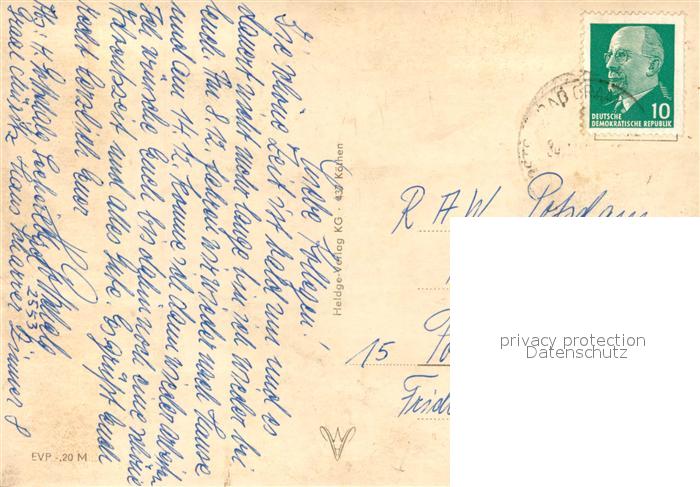 Liebe Kollegen!
Die schöne Zeit ist bald um und es
dauert nicht mehr lange bin ich wieder bei
Euch. Am 8.12. fahren wir wieder nach Hause
und am 14.12. komme ich dann wieder arbeiten
Ich wünsche Euch bis dahin noch eine schöne
und alles Gute. Es grüßt Euch
recht herzlich Euer
2553
Haus Zimmer 8
EVP -,20 M
Heldge-Verlag KG · 437 Köthen
DEUTSCHE
DEMOKRATISCHE REPUBLIK
10
BAD
R A W Potsdam
15 Po
Fried
privacy protection
Datenschutz